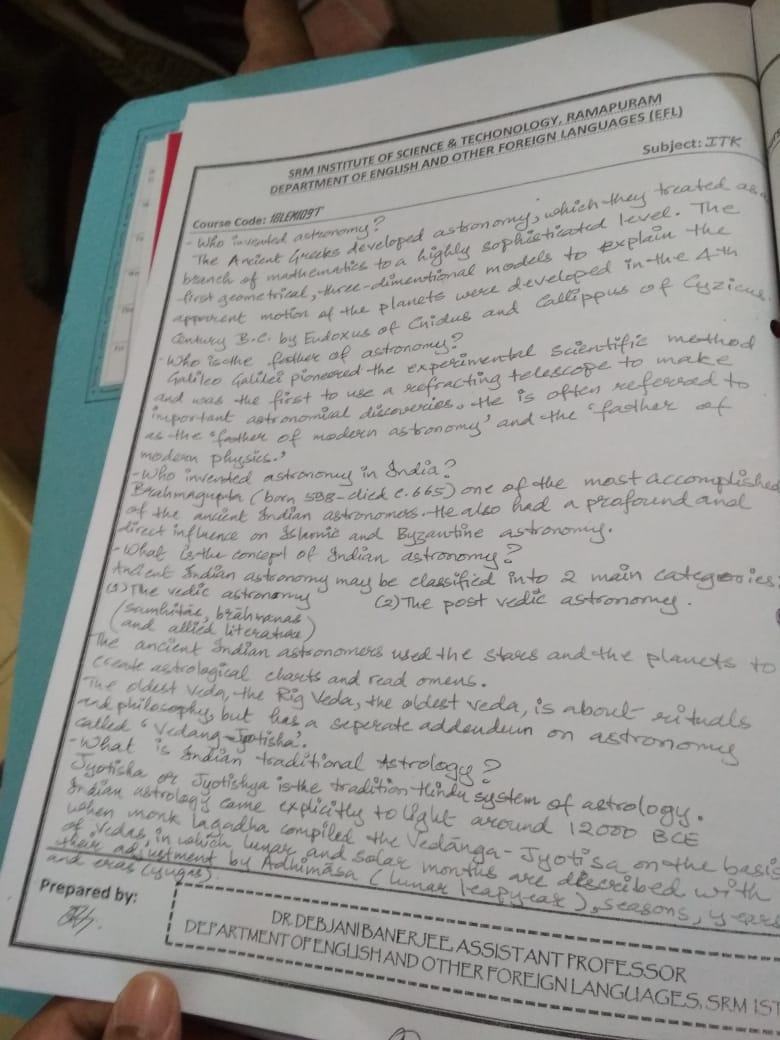 SRM INSTITUTE OF SCIENCE & TECHONOLOGY, RAMAPURAM
DEPARTMENT OF ENGLISH AND OTHER FOREIGN LANGUAGES (EFL)
Course Code: 18LEM109T
Subject: ITK
- Who invented astronomy?
The Ancient Greeks developed astronomy, which they treated as a
branch of mathematics to a highly sophisticated level. The
first geometrical, three-dimentional models to explain the
apparent motion of the planets were developed in the 4th
Century B.C. by Eudoxus of Cnidus and Callippus of Cyzicus.
- Who is the father of astronomy?
Galileo Galilei pioneered the experimental scientific method
and was the first to use a refracting telescope to make
important astronomial discoveries. He is often referred to
as the 'father of modern astronomy' and the 'father of
modern physics.'
- Who invented astronomy in India?
Brahmagupta (born 598-died c.665) one of the most accomplished
of the ancient Indian astronomers. He also had a profound and
direct influence on Islamic and Byzantine astronomy.
- What is the concept of Indian astronomy?
Ancient Indian astronomy may be classified into 2 main categories:
(1) The vedic astronomy (2) The post vedic astronomy.
(Samhitās, brāhmanas
(and allied literature)
The ancient Indian astronomers used the stars and the planets to
create astrological charts and read omens.
The oldest Veda, the Rig Veda, the oldest veda, is about rituals
and philosophy, but has a seperate addendum on astronomy
called 'Vedang-Jyotisha'.
- What is Indian traditional Astrology?
Jyotisha or Jyotishya is the tradition Hindu system of astrology.
Indian astrology came explicitly to light around 12000 BCE
when monk lagadha compiled the Vedānga-Jyotisa on the basis
of Vedas, in which lunar and solar months are described with
their adjustment by Adhimāsa (lunar leapyear), seasons, years
and eras (yugas).
Prepared by:
DR.DEBJANI BANERJEE, ASSISTANT PROFESSOR
DEPARTMENT OF ENGLISH AND OTHER FOREIGN LANGUAGES, SRM IST